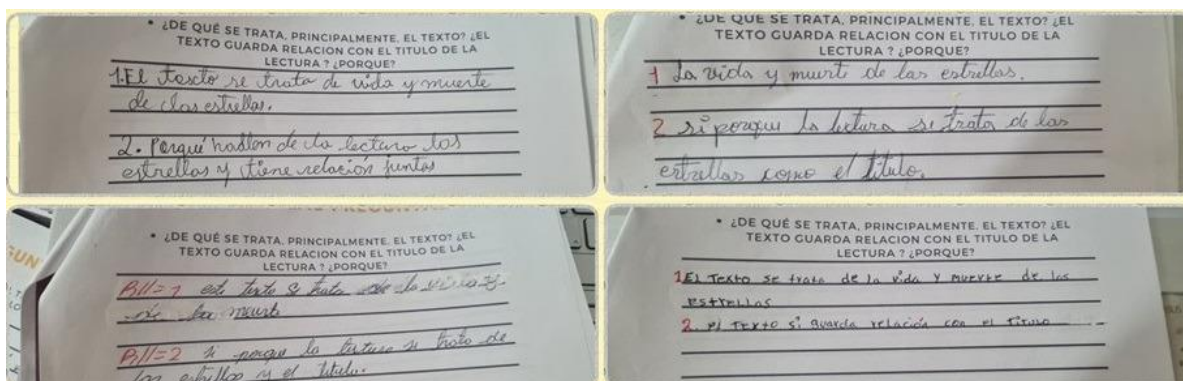 • ¿DE QUÉ SE TRATA, PRINCIPALMENTE, EL TEXTO? ¿EL
TEXTO GUARDA RELACION CON EL TITULO DE LA
LECTURA ? ¿PORQUE?
1. El texcto se trata de vida y muerte
de las estrellas.
2. Porqué hablan de la lectura las
estrellas y tiene relación juntas
• ¿DE QUÉ SE TRATA, PRINCIPALMENTE, EL TEXTO? ¿EL
TEXTO GUARDA RELACION CON EL TITULO DE LA
LECTURA ? ¿PORQUE?
1 La vida y muerte de las estrellas.
2 si porque la lectura se trata de las
estrellas como el titulo.
• ¿DE QUÉ SE TRATA, PRINCIPALMENTE, EL TEXTO? ¿EL
TEXTO GUARDA RELACION CON EL TITULO DE LA
LECTURA ? ¿PORQUE?
1 este texto se trata de la vida y
de la muerte
2 si porque la lectura se trata de
las estrellas y el titulo.
• ¿DE QUÉ SE TRATA, PRINCIPALMENTE, EL TEXTO? ¿EL
TEXTO GUARDA RELACION CON EL TITULO DE LA
LECTURA ? ¿PORQUE?
1 EL Texto se trata de la vida y muerte de las
estrellas
2. el Texto si guarda relación con el titulo